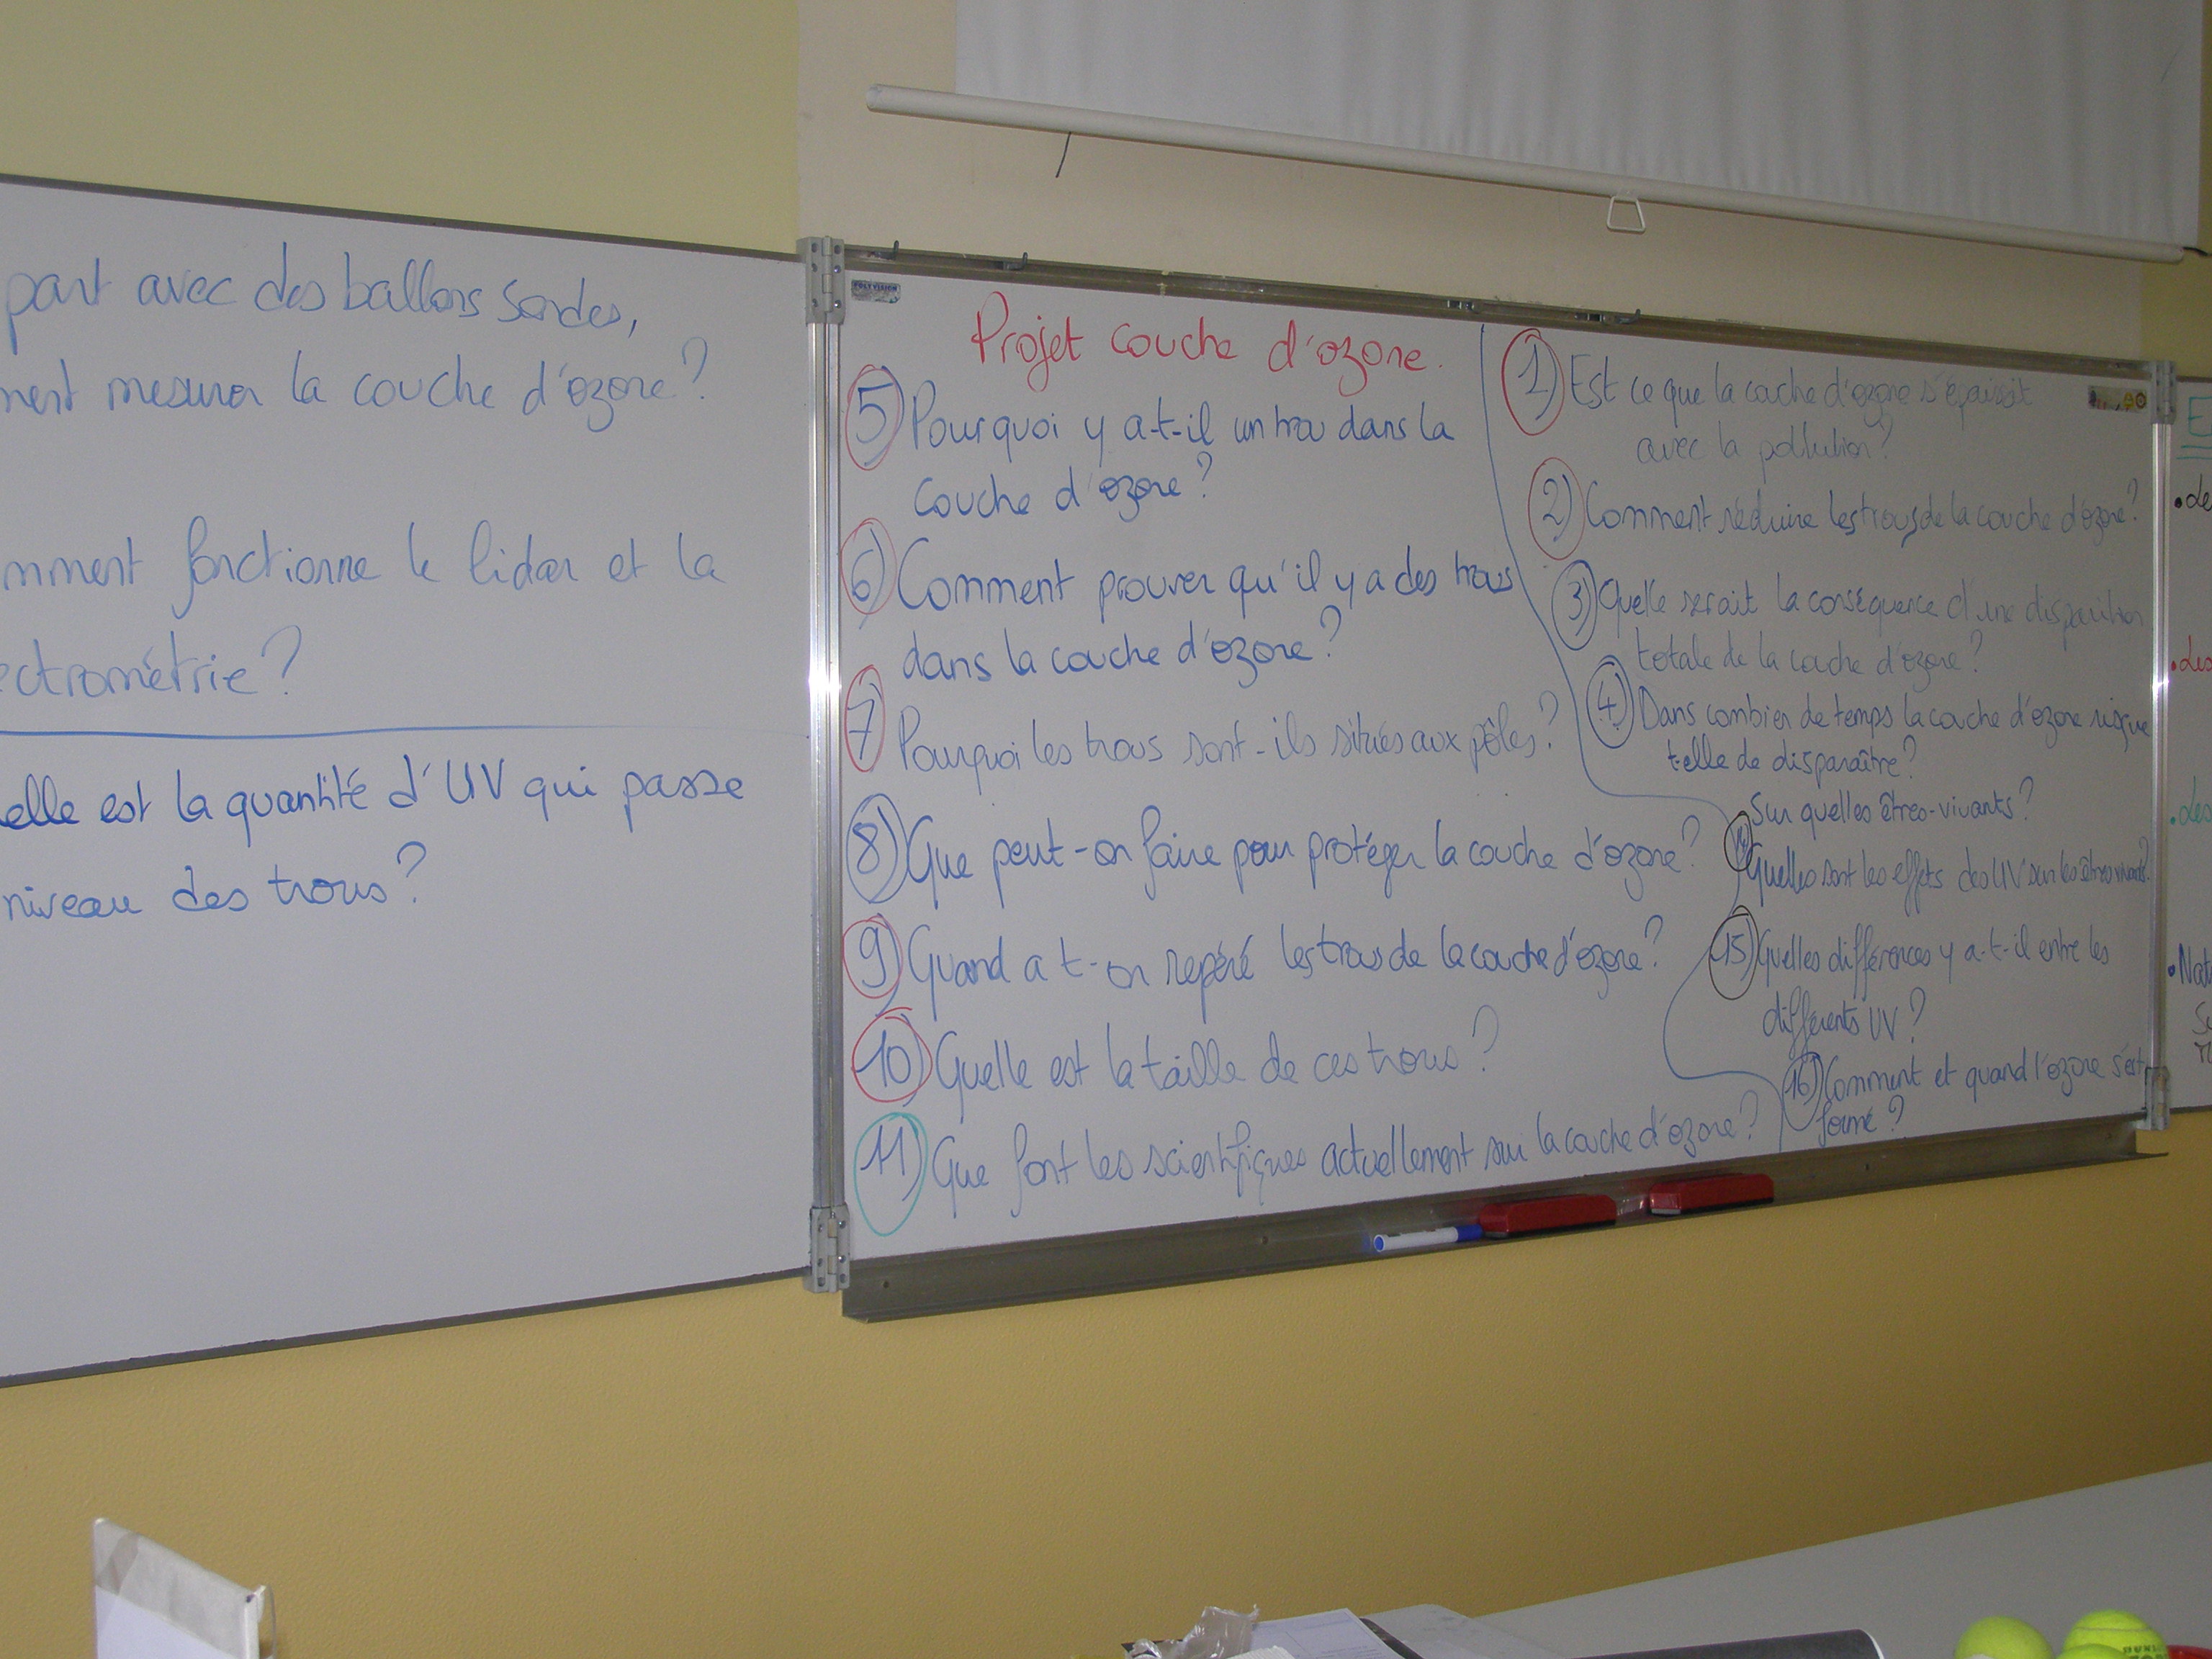 part avec des ballons sondes,
ment mesurer la couche d'ozone?
mment fonctionne le lidar et la
ectrométrie?
elle est la quantité d'UV qui passe
niveau des trous?
POLYVISION
Projet couche d'ozone.
5) Pourquoi y a-t-il un trou dans la
couche d'ozone?
6) Comment prouver qu'il y a des trous
dans la couche d'ozone?
7) Pourquoi les trous sont-ils situés aux pôles?
8) Que peut-on faire pour protéger la couche d'ozone?
9) Quand a t-on repéré les trous de la couche d'ozone?
10) Quelle est la taille de ces trous?
11) Que font les scientifiques actuellement sur la couche d'ozone?
1) Est ce que la couche d'ozone s'épaissit
avec la pollution?
2) Comment réduire les trous de la couche d'ozone?
3) Quelle serait la conséquence d'une disparition
totale de la couche d'ozone?
4) Dans combien de temps la couche d'ozone risque
t-elle de disparaître?
Sur quelles êtres-vivants?
14) Quelles sont les effets des UV sur les êtres vivants?
15) Quelles différences y a-t-il entre les
différents UV?
16) Comment et quand l'ozone s'est
formé?
E
• de
• des
• des
• Nat